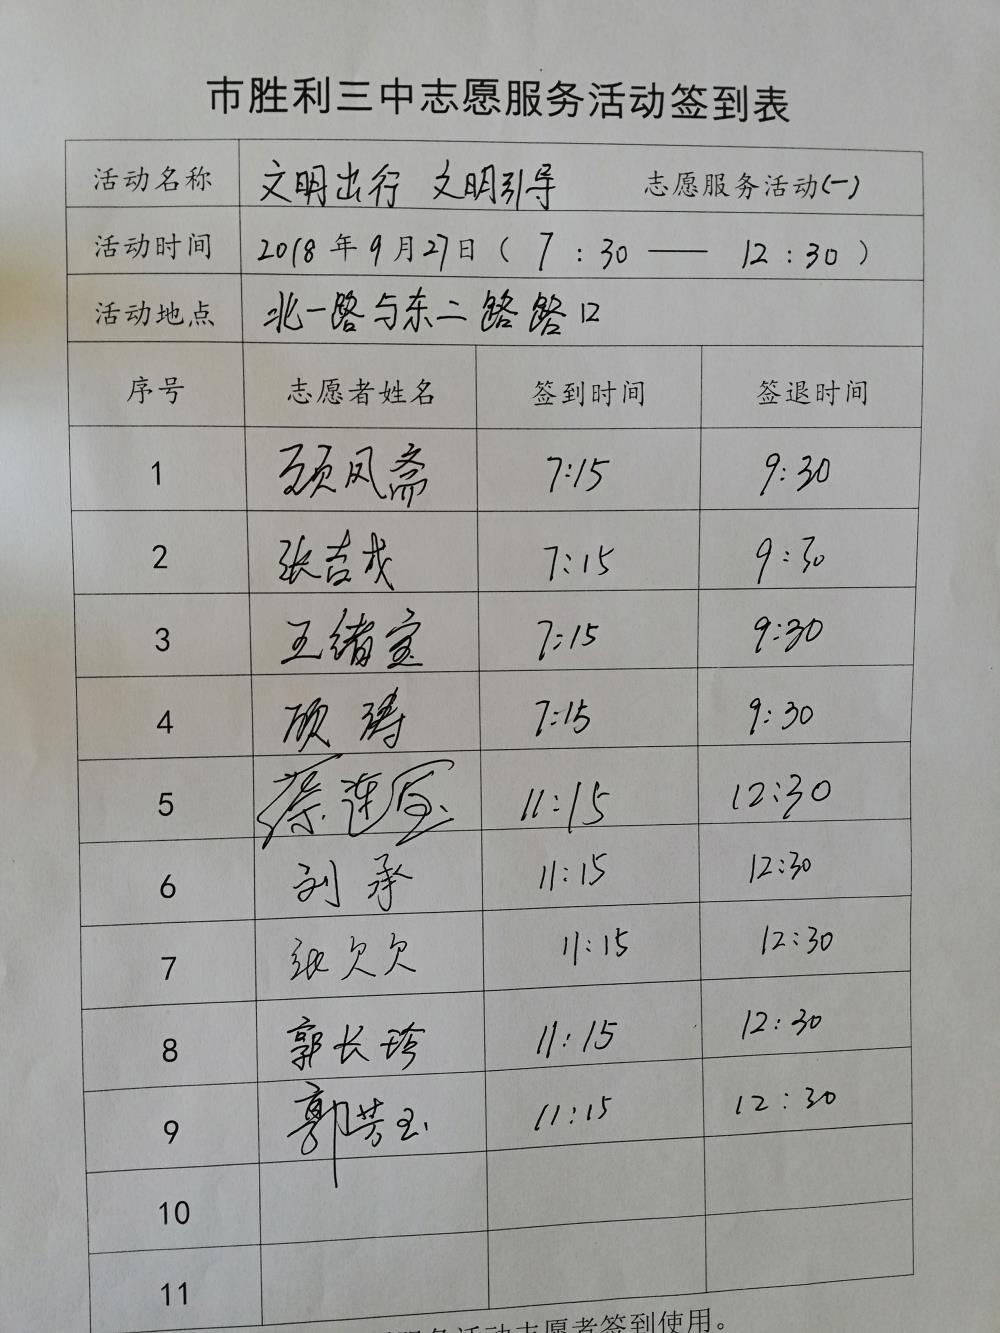 市胜利三中志愿服务活动签到表
活动名称 文明出行 文明引导 志愿服务活动(一)
活动时间 2018年9月27日（7:30——12:30）
活动地点 北一路与东二路路口
序号 志愿者姓名 签到时间 签退时间
1 顾凤斋 7:15 9:30
2 张吉成 7:15 9:30
3 王绪宝 7:15 9:30
4 顾涛 7:15 9:30
5 蔡连宝 11:15 12:30
6 刘承 11:15 12:30
7 张欠欠 11:15 12:30
8 郭长玲 11:15 12:30
9 郭芳玉 11:15 12:30
10
11
服务活动志愿者签到使用。